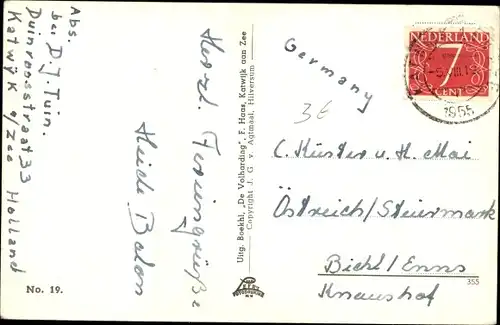 Abs.
bei D. J. Tuin.
Duinroosstraat 33
Katwÿk a/zee Holland
Herzl. Feriengrüße
Heide Balon
No. 19.
Uitg. Boekhl. „De Volharding", F. Haas, Katwijk aan Zee
Copyright J. G. v. Agtmaal, Hilversum
Germany
36
NEDERLAND
7
CENT
1955
C. Küster u. H. Mai
Östreich/Steiermark
Bichl/Enns
Knaushof
355